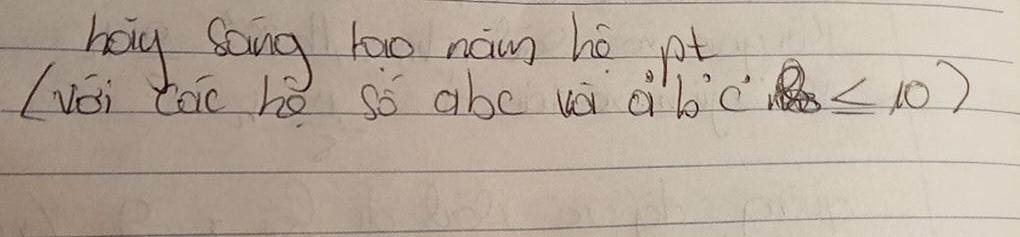 hãy sáng tạo năm hệ pt
(với các hệ số abc và a'b'c' ≤ 10)